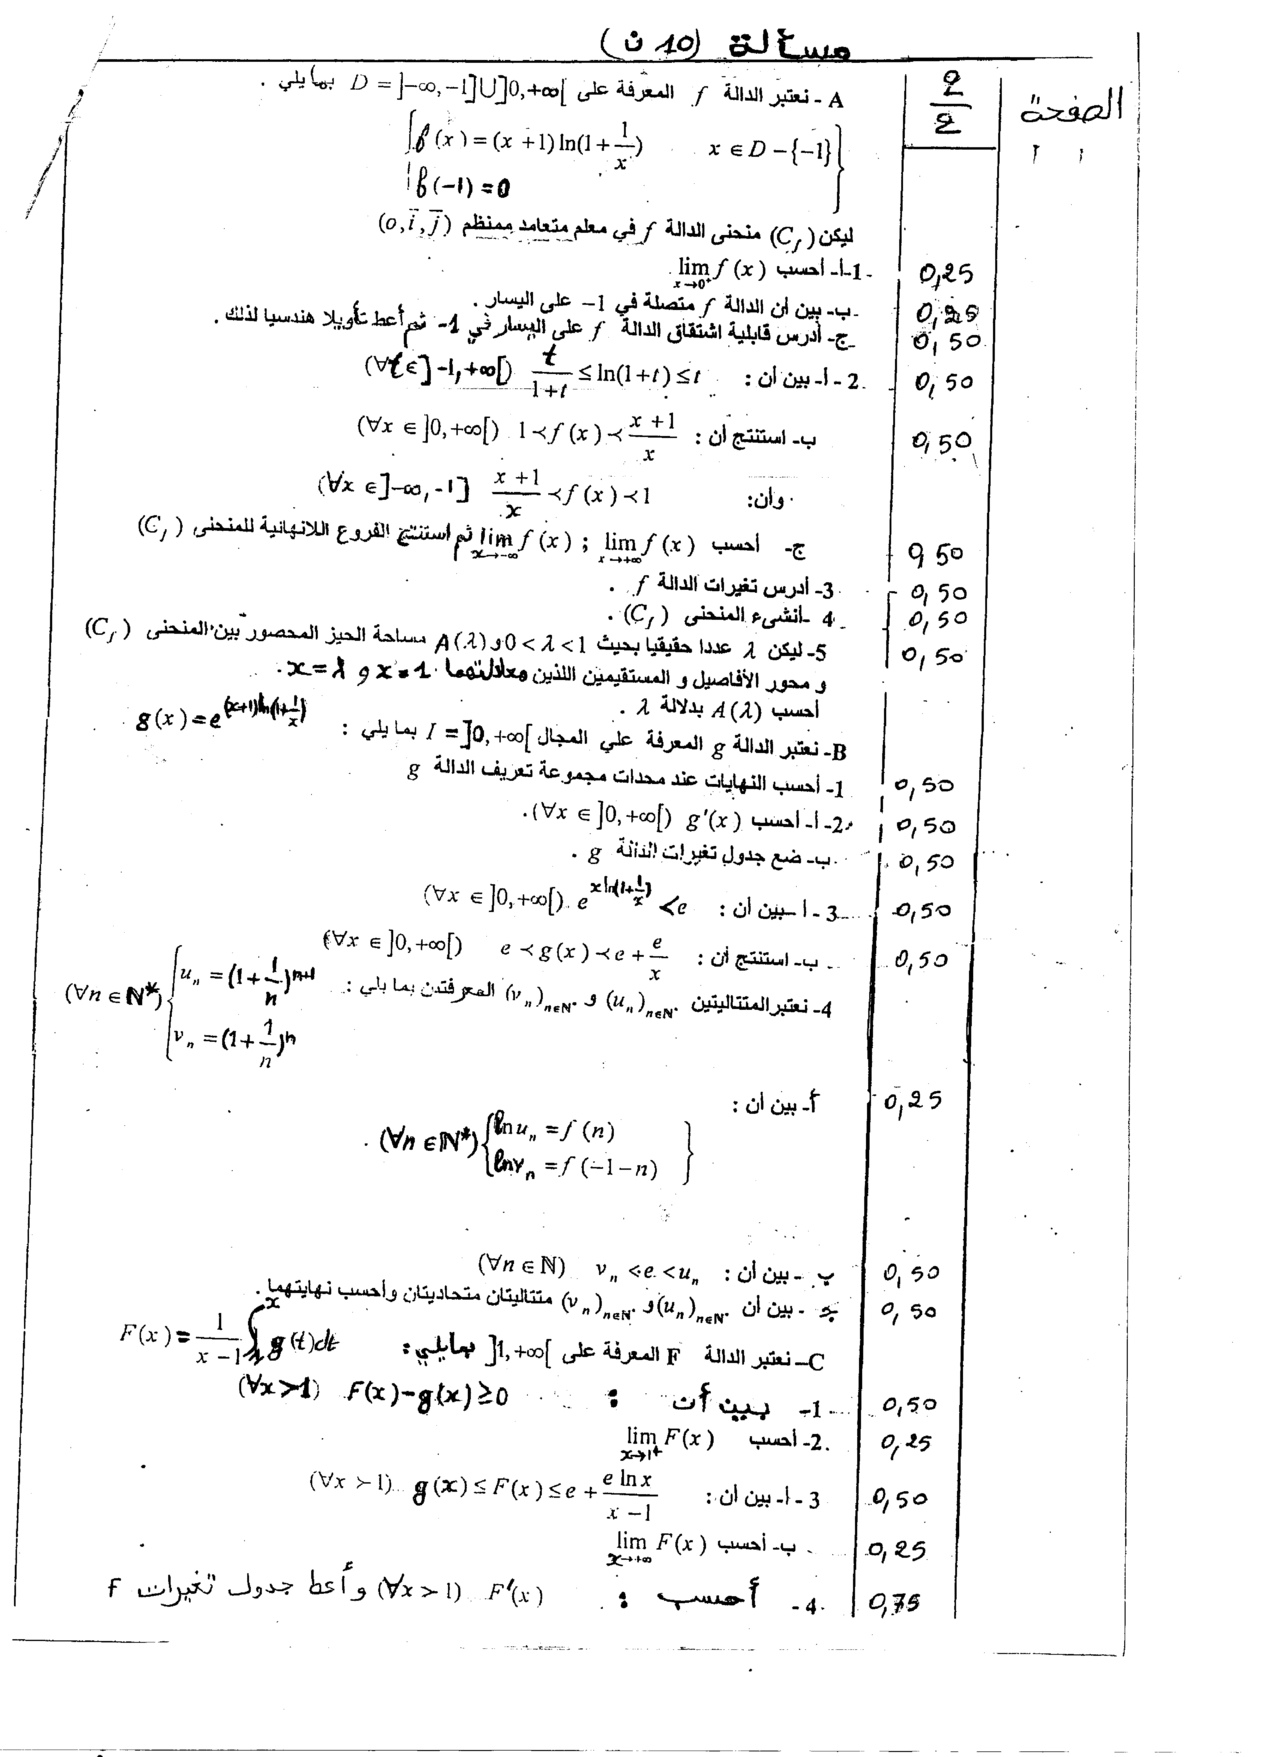 مسألة (10 ن)
الصفحة 2/2
A - نعتبر الدالة f المعرفة على D = ]-∞,-1]∪]0,+∞[ بمايلي .
f(x) = (x+1)ln(1+1/x)   x ∈ D-{-1}
f(-1) = 0
ليكن (C_f) منحنى الدالة f في معلم متعامد ممنظم (o, i, j)
1-أ- أحسب lim_{x→0⁺} f(x)   0,25
ب- بين أن الدالة f متصلة في 1- على اليسار .   0,25
ج- أدرس قابلية اشتقاق الدالة f على اليسار في 1- ثم أعط تأويلا هندسيا لذلك .   0,50
2 - أ- بين أن : t/(1+t) ≤ ln(1+t) ≤ t (∀t ∈ ]-1,+∞[)   0,50
ب- استنتج أن : 1 ≺ f(x) ≺ (x+1)/x (∀x ∈ ]0,+∞[)   0,50
وأن: (x+1)/x ≺ f(x) ≺ 1 (∀x ∈ ]-∞,-1]
ج- أحسب lim_{x→+∞} f(x) ; lim_{x→-∞} f(x) ثم استنتج الفروع اللانهائية للمنحنى (C_f)   0,50
3- أدرس تغيرات الدالة f .   0,50
4 -أنشىء المنحنى (C_f) .   0,50
5- ليكن λ عددا حقيقيا بحيث 0 < λ < 1 و A(λ) مساحة الحيز المحصور بين المنحنى (C_f)   0,50
و محور الأفاصيل و المستقيمين اللذين معادلاتهما x = 1 و x = λ .
أحسب A(λ) بدلالة λ .
B- نعتبر الدالة g المعرفة على المجال I = ]0,+∞[ بمايلي : g(x) = e^{(x+1)ln(1+1/x)}
1- أحسب النهايات عند محدات مجموعة تعريف الدالة g   0,50
2- أ- أحسب g'(x) (∀x ∈ ]0,+∞[).   0,50
ب- ضع جدول تغيرات الدالة g .   0,50
3 - أ - بين أن : e^{x ln(1+1/x)} < e (∀x ∈ ]0,+∞[)   0,50
ب- استنتج أن : e ≺ g(x) ≺ e + e/x (∀x ∈ ]0,+∞[)   0,50
4- نعتبر المتتاليتين (u_n)_{n∈N*} و (v_n)_{n∈N*} المعرفتين بما يلي :
(∀n ∈ N*) { u_n = (1+1/n)^{n+1}
v_n = (1+1/n)^n
أ- بين أن :   0,25
(∀n ∈ N*) { ln u_n = f(n)
ln v_n = f(-1-n) }
ب - بين أن : v_n < e < u_n (∀n ∈ N)   0,50
ج - بين أن (u_n)_{n∈N*} و (v_n)_{n∈N*} متتاليتان متحاديتان وأحسب نهايتهما.   0,50
C- نعتبر الدالة F المعرفة على ]1,+∞[ بمايلي : F(x) = 1/(x-1) ∫_1^x g(t)dt
1- بين أن : F(x)-g(x) ≥ 0 (∀x > 1)   0,50
2- أحسب lim_{x→1⁺} F(x)   0,25
3 - أ- بين أن : g(x) ≤ F(x) ≤ e + (e ln x)/(x-1) (∀x ≻ 1)   0,50
ب- أحسب lim_{x→+∞} F(x)   0,25
4- أحسب : F'(x) (∀x > 1) وأعط جدول تغيرات F   0,75